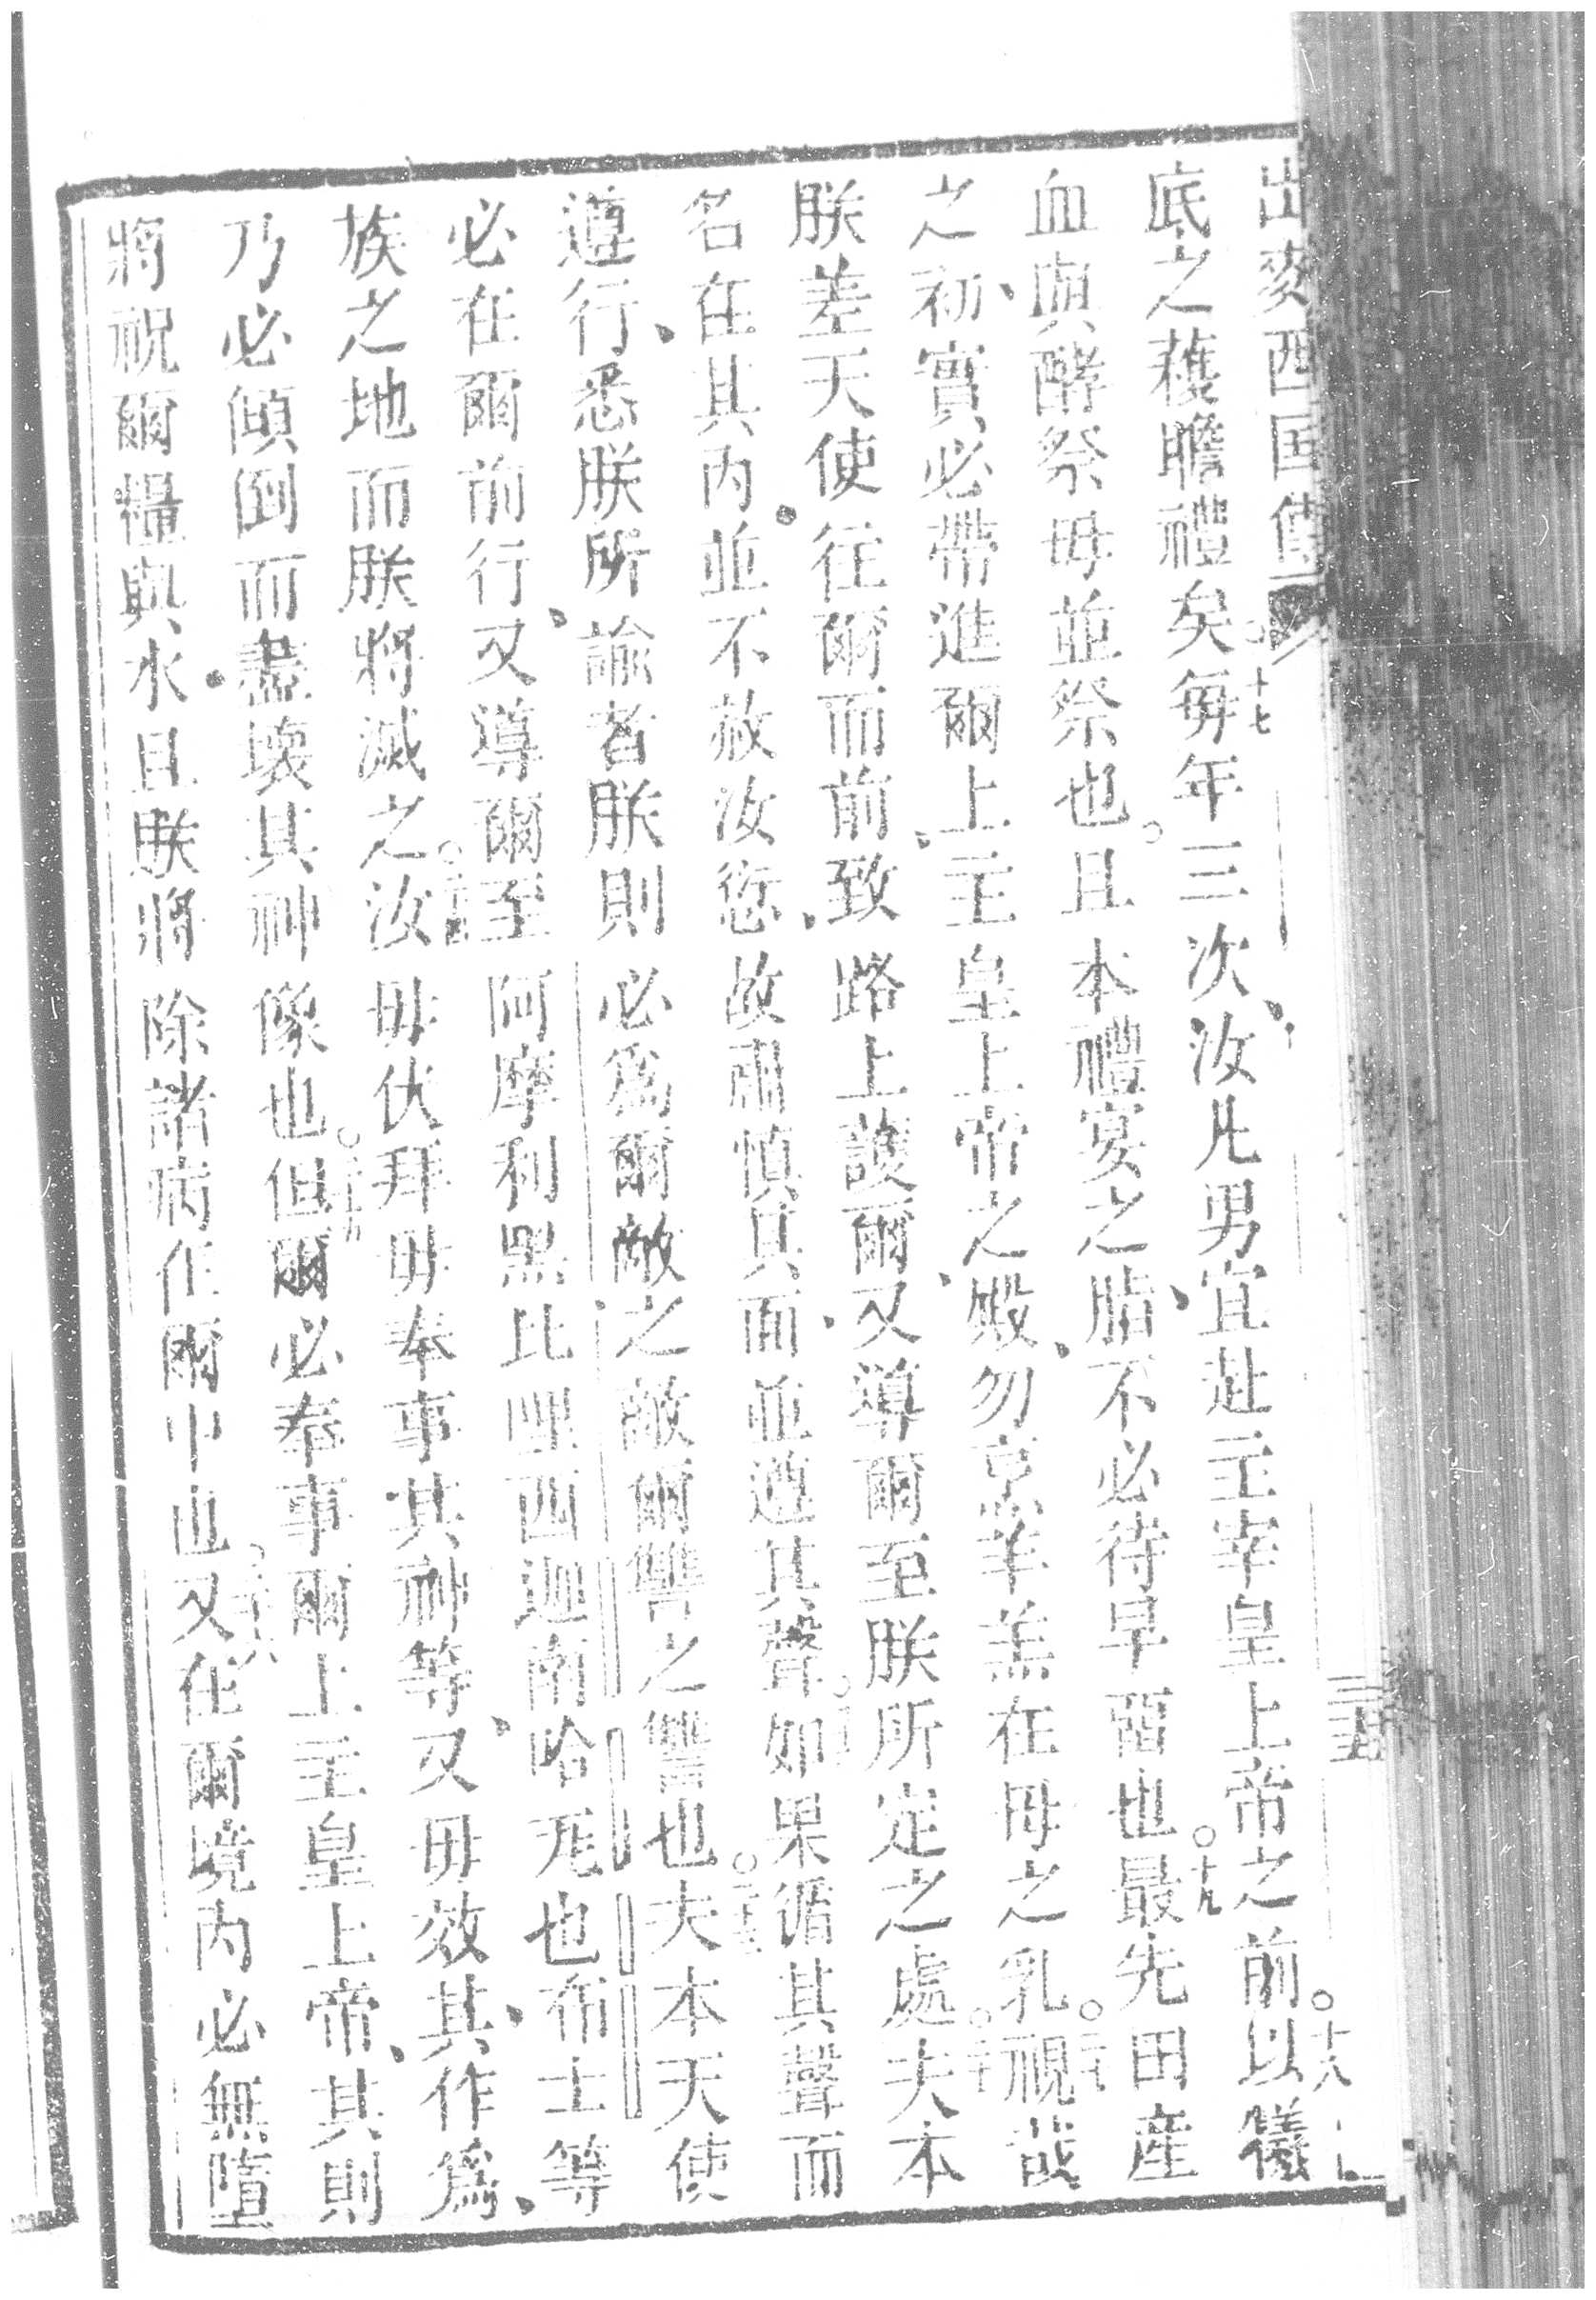 出麥西国傳
三十五
底之穫瞻禮矣○十七每年三次、汝凡男宜赴主宰皇上帝之前○十八以儀
血與酵祭毋並祭也。且本禮宴之脂、不必待早畱也○十九最先田產
之初實、必帶進爾上主皇上帝之殿、勿烹羊羔在母之乳○二十視哉
朕差天使往爾而前、致路上護爾、又導爾至朕所定之處夫本
名在其內、並不赦汝愆、故肅慎其面、並遵其聲。如果循其聲而
遵行、悉朕所諭者、朕則必爲爾敵之敵爾讐之讐也○二十三夫本天使
必在爾前行、又導爾至阿摩利黑比哩西迦南哈　也布士等
族之地而朕將滅之○二十四汝毋伏拜毋奉事其神等、又毋效其作爲、
乃必傾倒而盡壞其神像也○二十五但爾必奉事爾上主皇上帝、其則
將祝爾糧與水、且朕將除諸病在爾中也○二十六又在爾境內必無墮